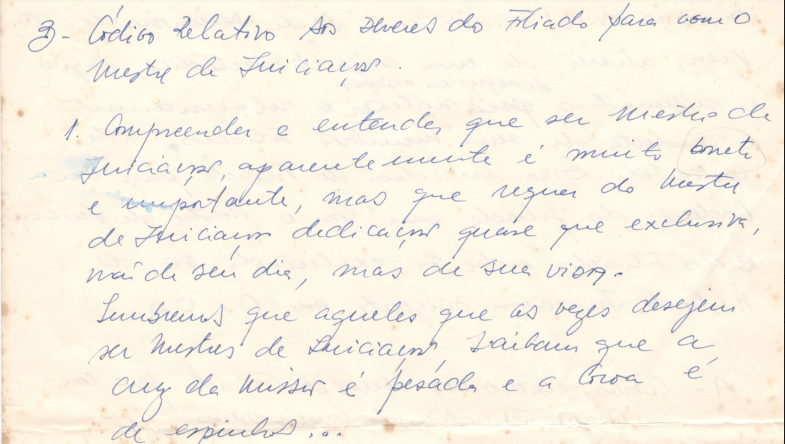 3- Código Relativo Aos Deveres do Filiado para com o
Mestre de Iniciação.
1. Compreender e entender que ser Mestre de
Iniciação, aparentemente é muito bonito
e importante, mas que requer do Mestre
de Iniciação dedicação quase que exclusiva,
não de seu dia, mas de sua vida.
Lembremos que aqueles que as vezes desejem
ser Mestres de Iniciação, saibam que a
cruz da Missão é pesada e a Coroa é
de espinhos...